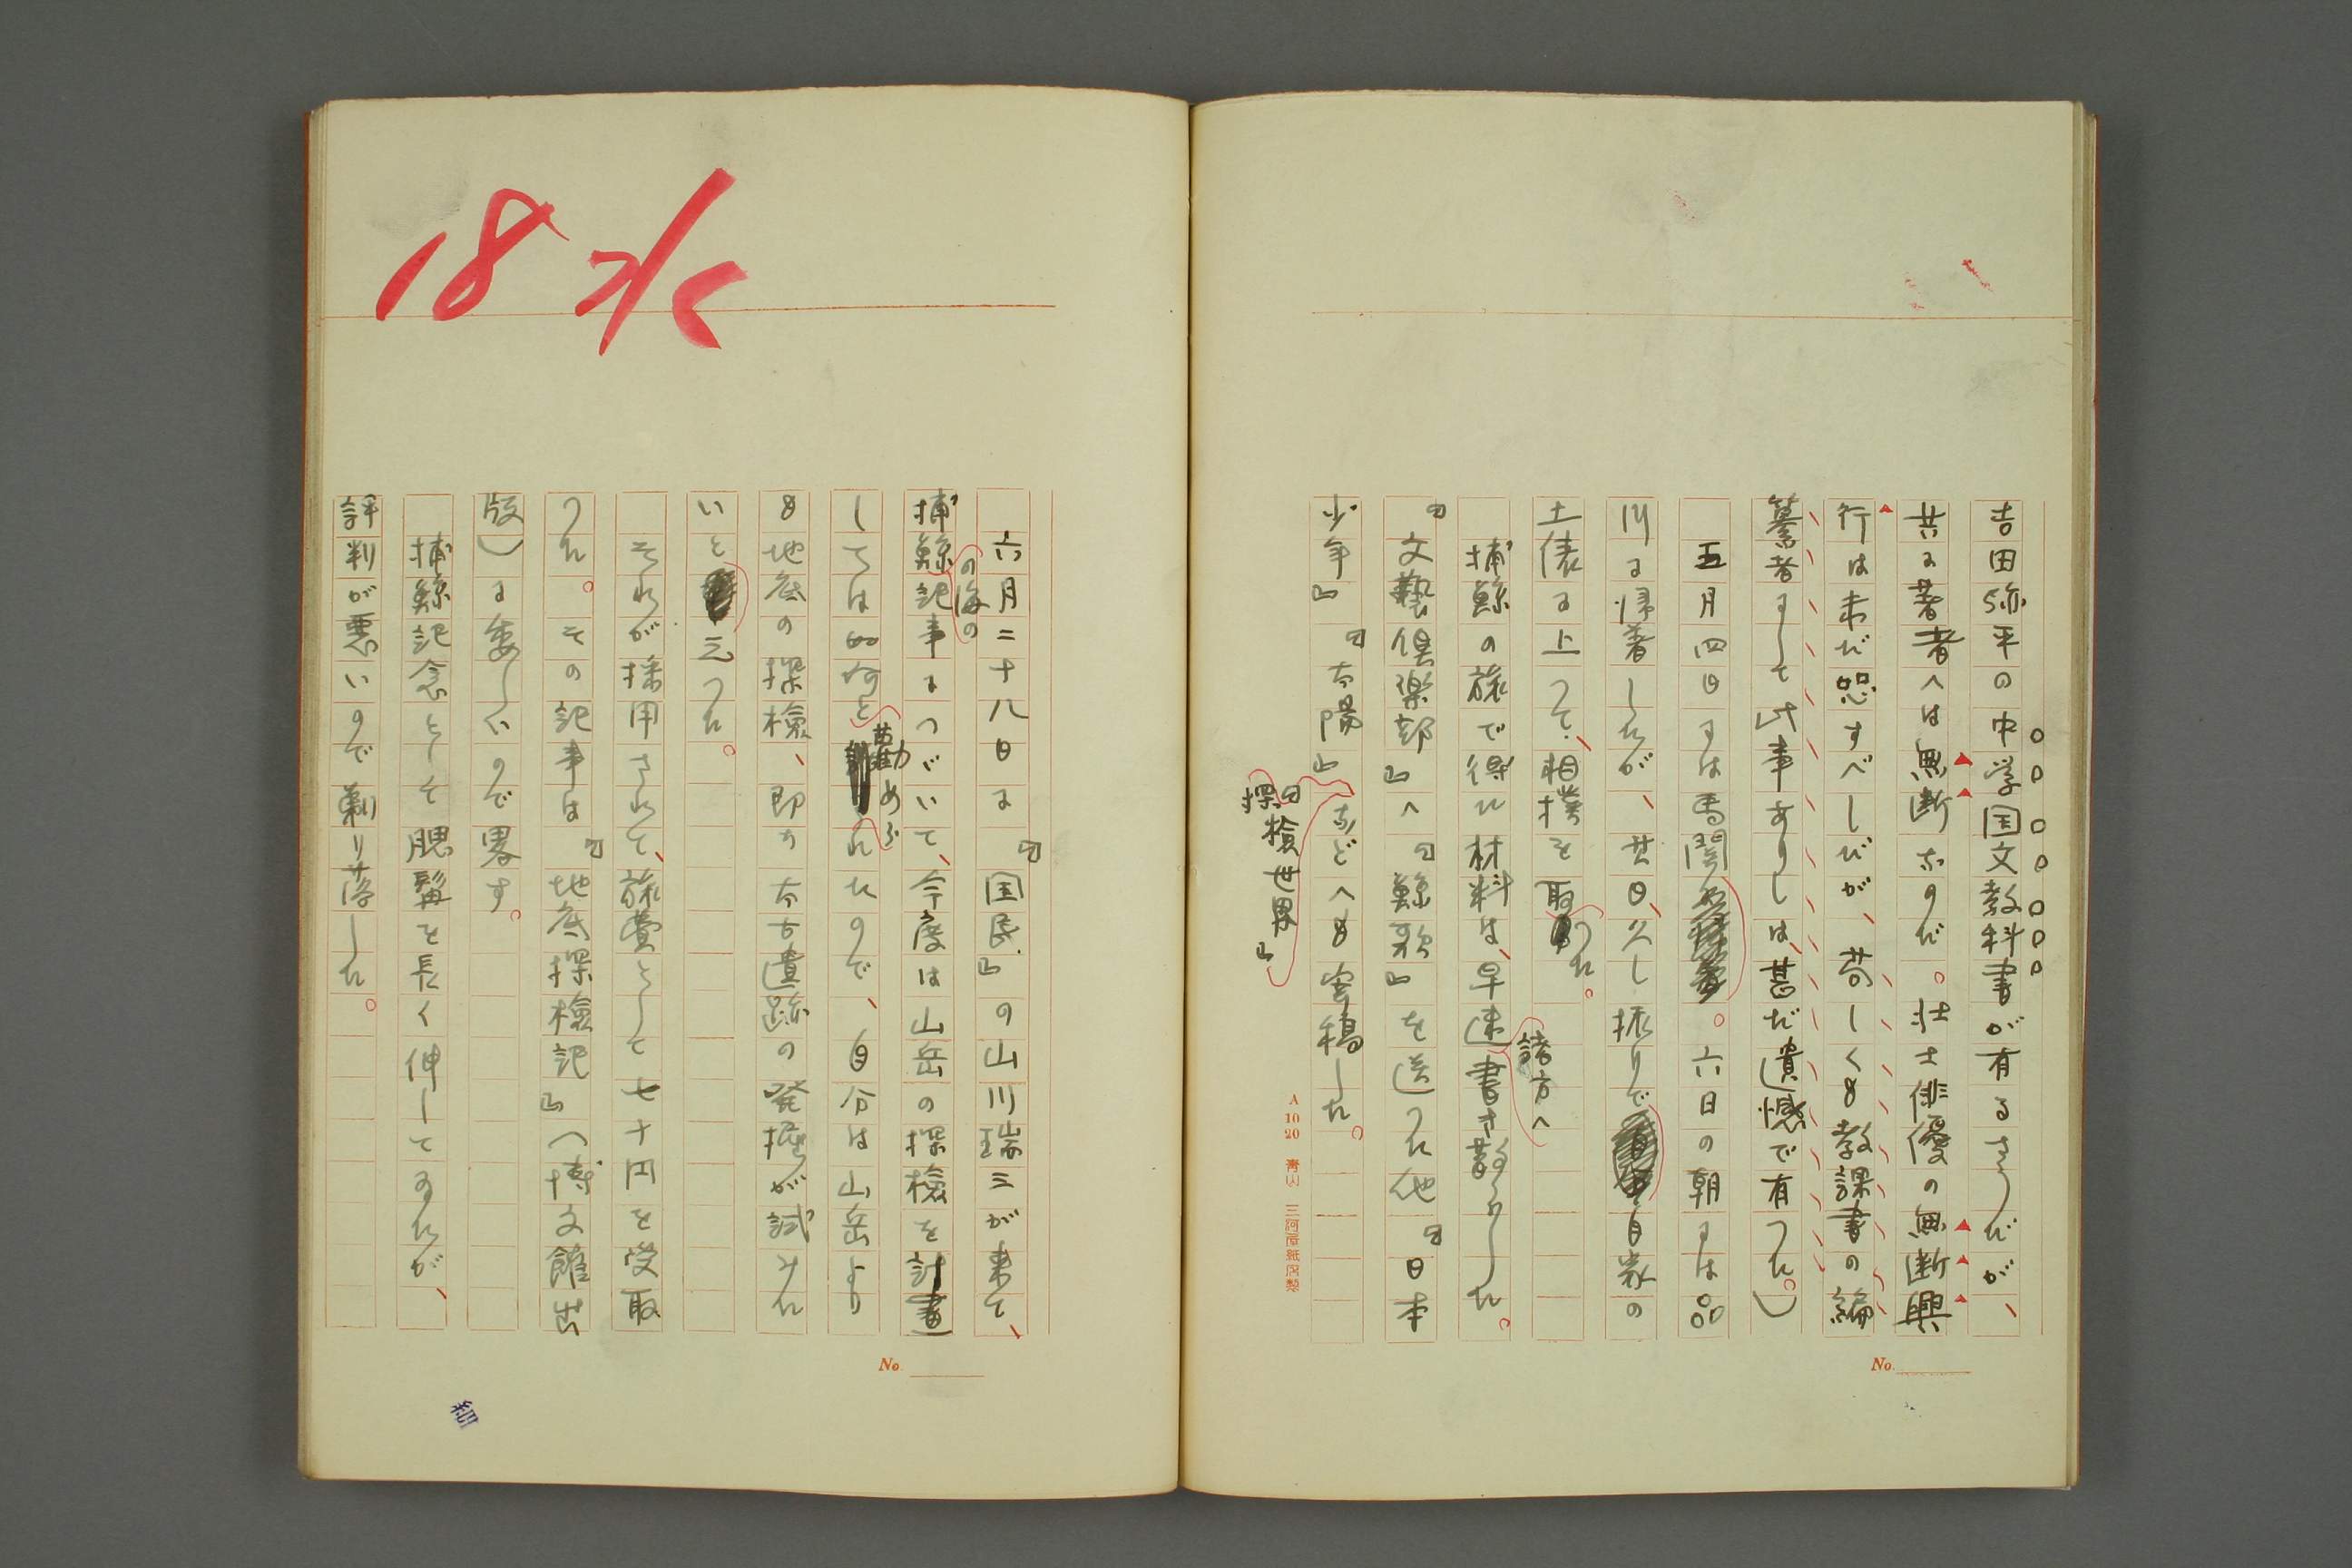 吉田弥平の中学国文教科書が有るさうだが、
共に著者へは無断なのだ。壮士俳優の無断興
行は未だ恕すべしだが、苟しくも教課書の編
纂者にして此事ありしは、甚だ遺憾で有つた。）
五月四日には馬関。六日の朝には品
川に帰着したが、其日、久し振りで自家の
土俵に上つて、相撲を取つた。
捕鯨の旅で得た材料は、早速諸方へ書き散らした。
『文藝倶楽部』へ『鯨歌』を送つた他『日本
少年』『太陽』『探検世界』などへも寄稿した。
A 10 20 青山 三河屋紙店製
No.
18 2/6
六月二十八日に『国民』の山川瑞三が来て、
捕鯨の海の記事につづいて、今度は山岳の探検を計畫
しては如何と勸められたので、自分は山岳より
も地底の探検、即ち太古遺跡の発掘が試みた
いと云つた。
それが採用されて、旅費として七十円を受取
つた。その記事は『地底探検記』（博文館出
版）に委しいので畧す。
捕鯨記念として腮髯を長く伸してゐたが、
評判が悪いので剃り落した。
No.